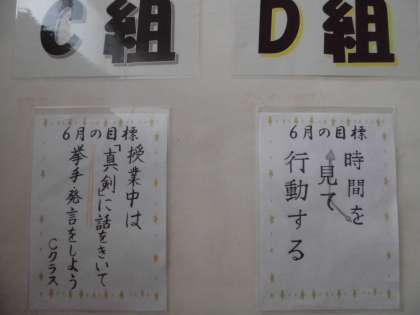 C組
6月の目標
授業中は
「真剣」に話をきいて
挙手発言をしよう
Cクラス
D組
6月の目標
時間を
見て
行動する